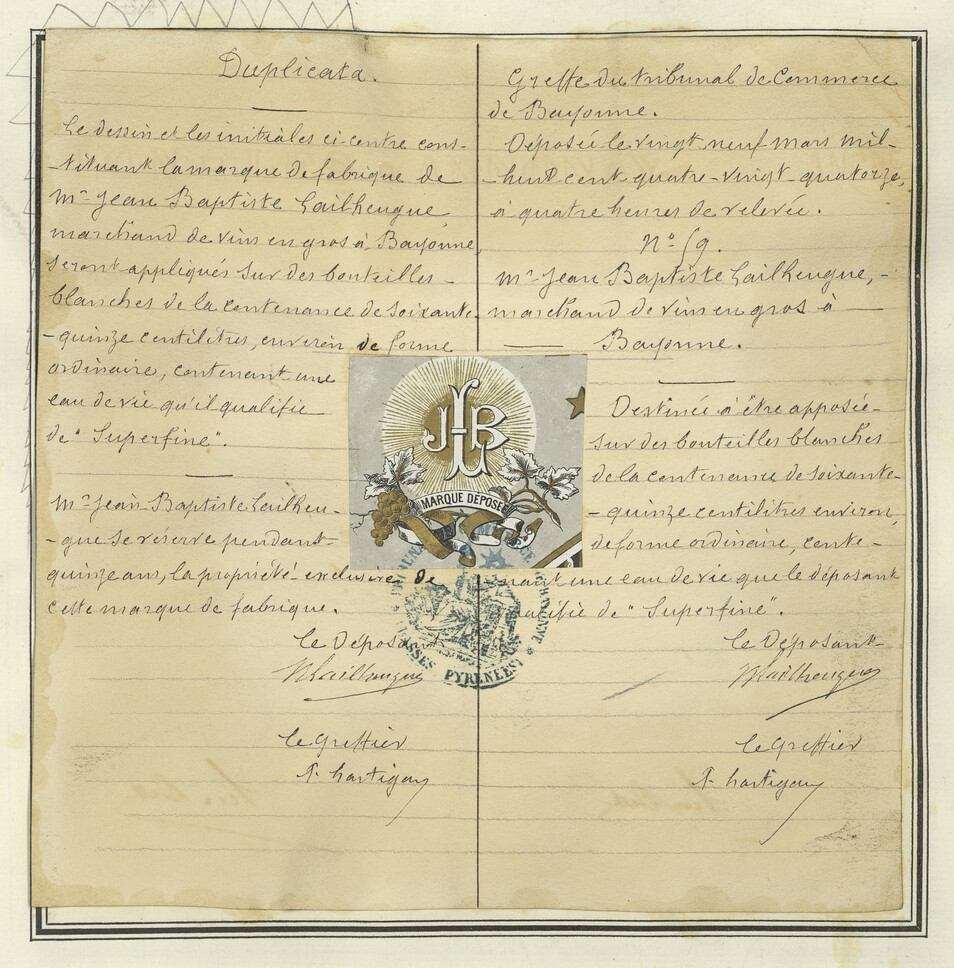 Duplicata.
Le dessin et les initiales ci-contre cons-
-tituant la marque de fabrique de
Mr Jean Baptiste Lailheugue,
marchand de vins en gros à Bayonne,
seront appliqués sur des bouteilles-
blanches de la contenance de soixante-
-quinze centilitres, environ, de forme
ordinaire, contenant une
eau de vie qu'il qualifie
de "Superfine".
Mr Jean Baptiste Lailheu-
-gue se réserve pendant-
quinze ans, la propriété exclusive de
cette marque de fabrique.
Le Déposant
Lailheugue
Le Greffier
Greffe du tribunal de Commerce
de Bayonne.
Déposée le vingt neuf mars mil-
-huit cent quatre-vingt-quatorze,
à quatre heures de relevée.
No 59.
Mr Jean Baptiste Lailheugue,-
marchand de vins en gros à
Bayonne.
Destinée à être apposée-
sur des bouteilles blanches
de la contenance de soixante-
-quinze centilitres environ,
de forme ordinaire, conte-
-nant une eau de vie que le déposant
qualifie de "Superfine".
Le Déposant
Lailheugue
Le Greffier
JLB
MARQUE DÉPOSÉE
TRIBUNAL DE COMMERCE BAYONNE
BASSES PYRÉNÉES